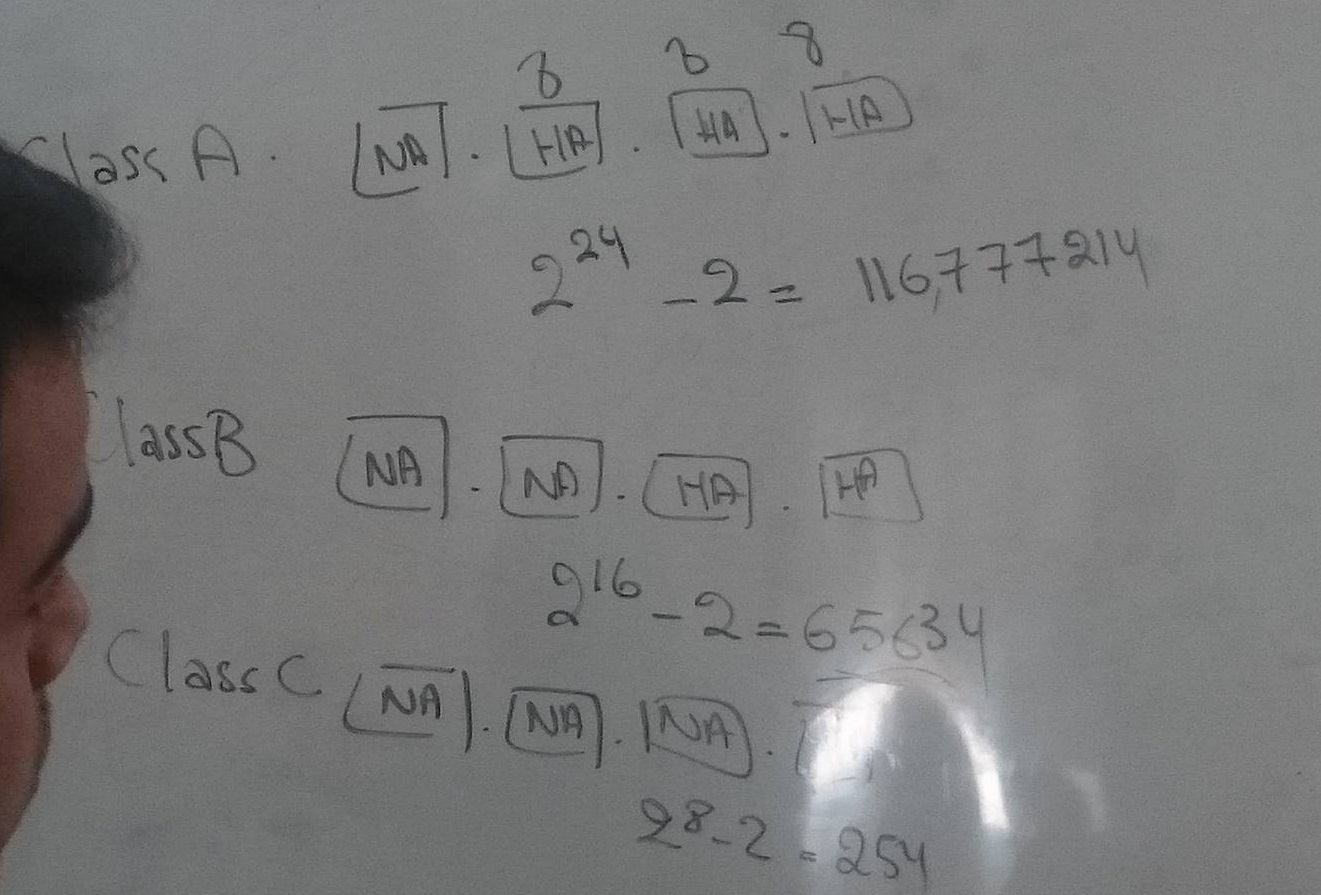 8 8 8
Class A. NA . HA . HA . HA
2^24 - 2 = 116,777214
Class B NA . NA . HA . HA
2^16 - 2 = 65634
Class C NA . NA . NA .
2^8 - 2 = 254